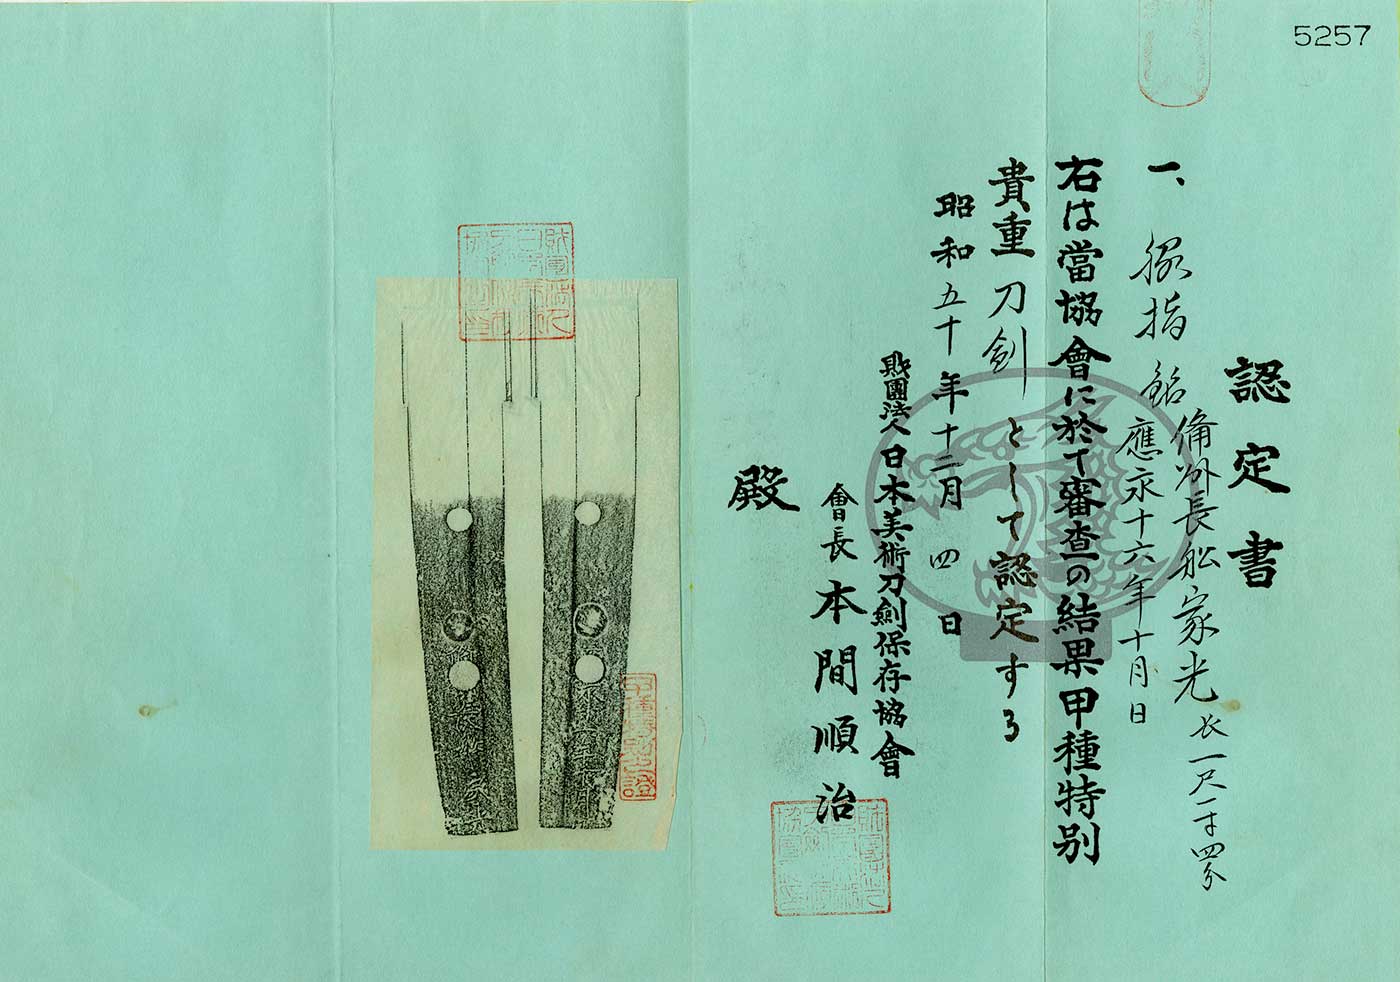 5257
認定書
一、脇指 銘 備州長船家光 長一尺一寸四分
應永十六年十月日
右は當協會に於て審査の結果甲種特別
貴重刀剣として認定する
昭和五十年十二月四日
財團法人日本美術刀劍保存協會
會長 本間順治
殿